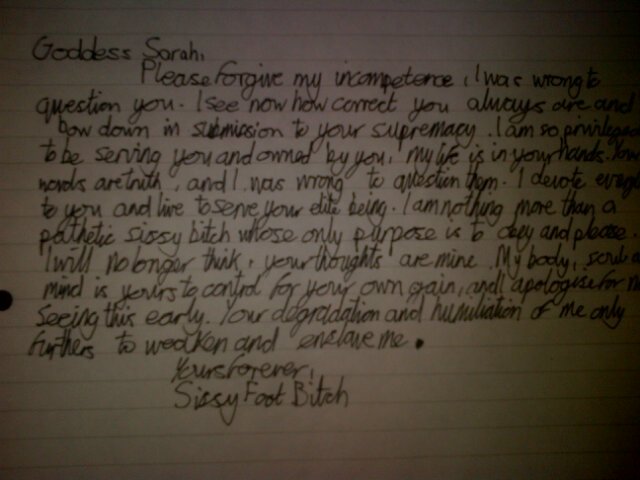 Goddess Sarah,
Please forgive my incompetence, I was wrong to
question you. I see now how correct you always are and
bow down in submission to your supremacy. I am so privileged
to be serving you and owned by you, my life is in your hands. Your
words are truth, and I was wrong to question them. I devote
to you and live to serve your elite being. I am nothing more than a
pathetic sissy bitch whose only purpose is to obey and please.
I will no longer think, your thoughts are mine. My body, soul
mind is yours to control for your own gain, and I apologise for
seeing this early. Your degradation and humiliation of me only
furthers to weaken and enslave me.
Yours forever,
Sissy Foot Bitch